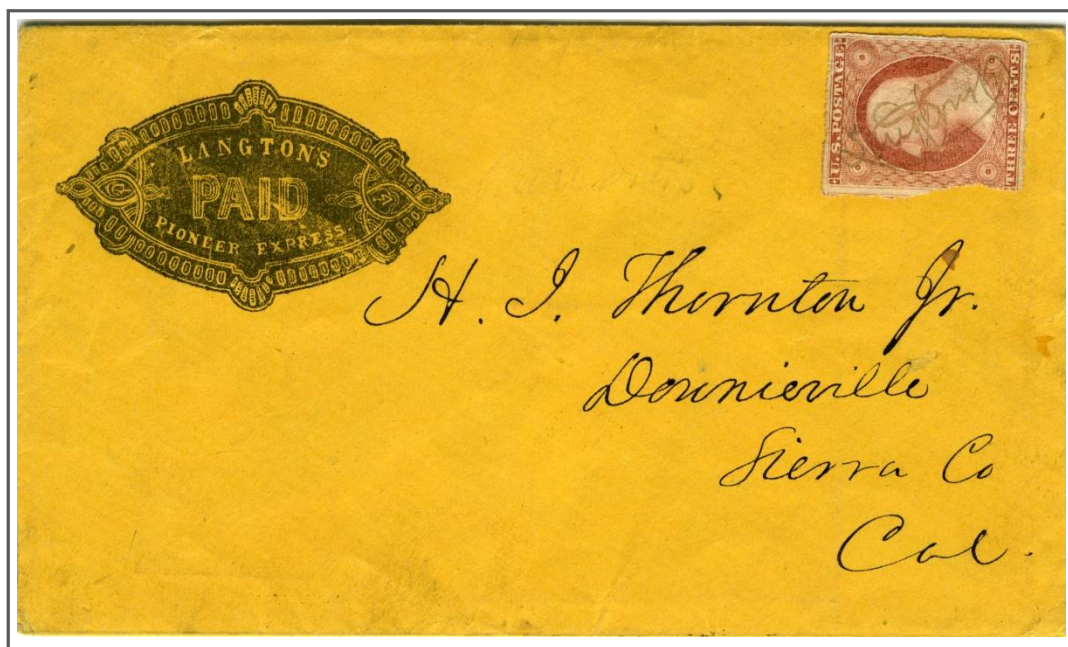 LANGTON'S
PAID
PIONEER EXPRESS.
U.S. POSTAGE
THREE CENTS
H. I. Thornton Jr.
Downieville
Sierra Co
Cal.